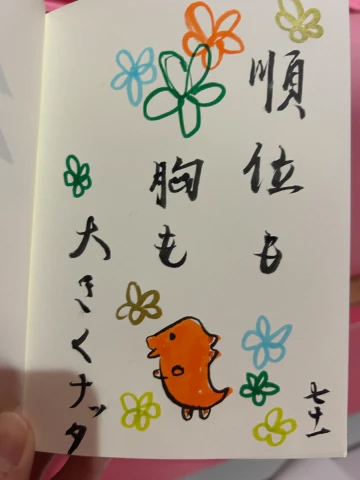 順位も
胸も
大きくナッタ
七十一